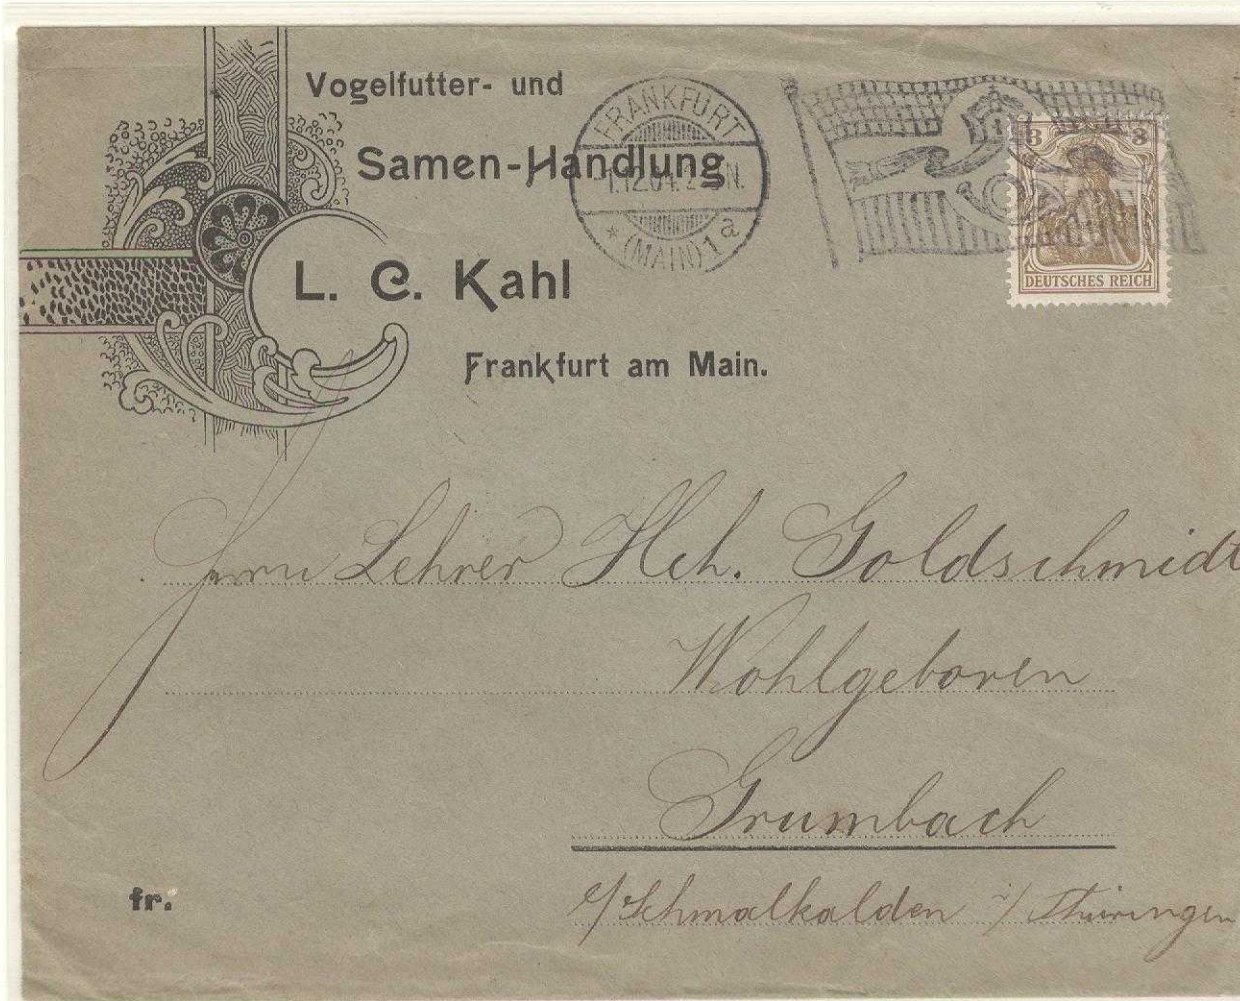 Vogelfutter- und
Samen-Handlung
L. C. Kahl
Frankfurt am Main.
FRANKFURT
1.12.04.
* (MAIN) 1 a
3 3
DEUTSCHES REICH
Herrn Lehrer Hch. Goldschmidt
Wohlgeboren
Grumbach
b/Schmalkalden i/Thüringen
fr.